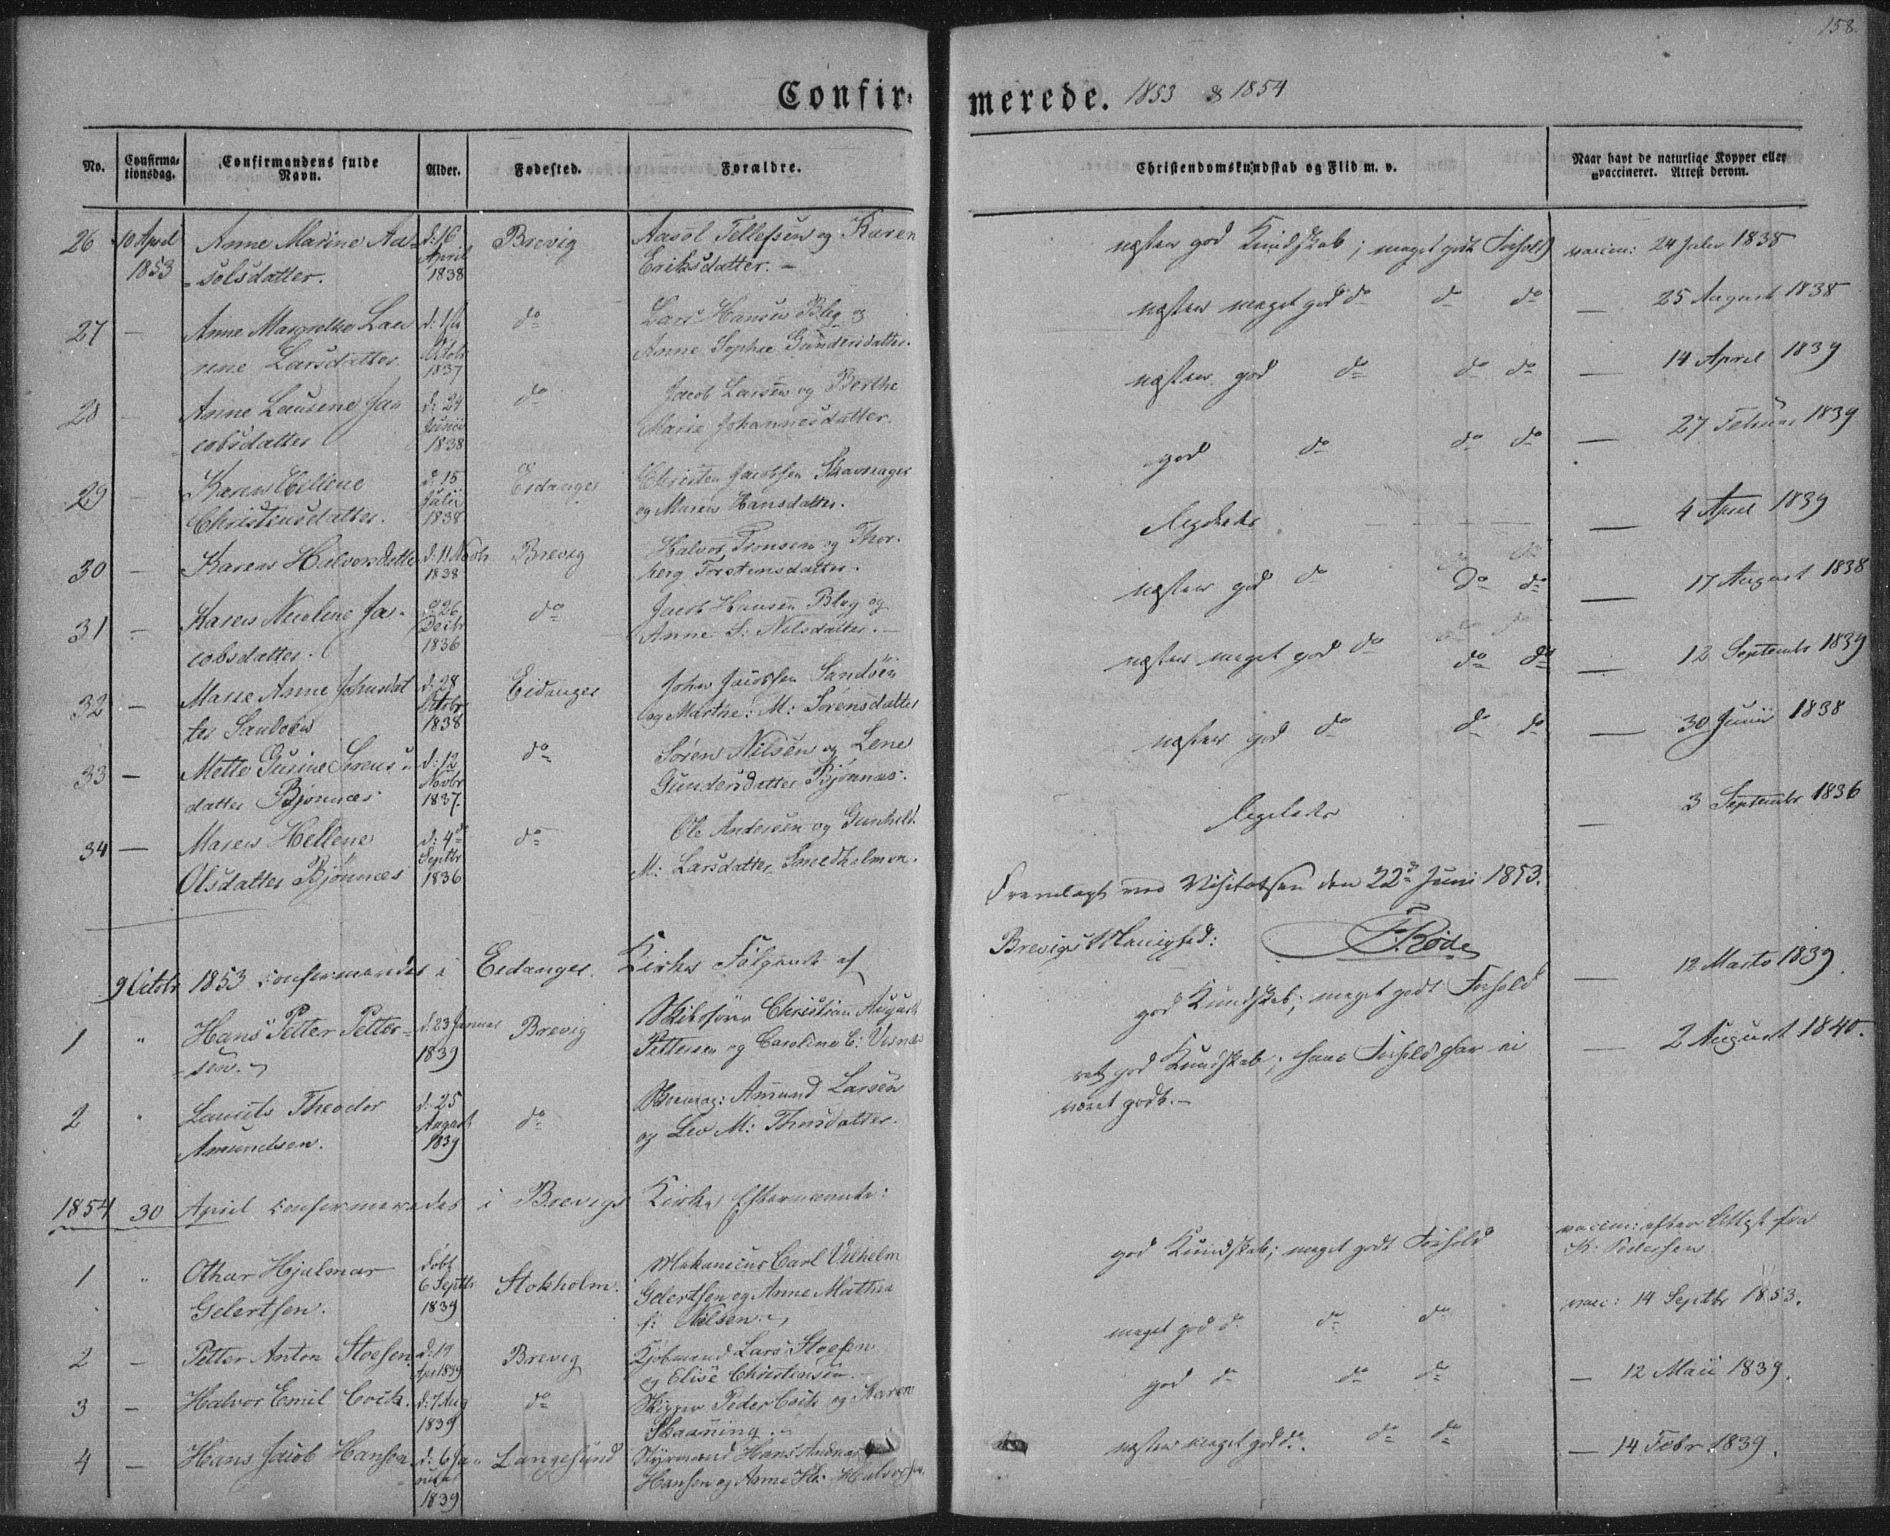 158.
Confir- merede. 1853 & 1854
No. Confirma-tionsdag. Confirmandens fulde Navn. Alder. Fødested. Forældre. Christendomskundskab og Flid m. v. Naar havt de naturlige Kopper eller vaccineret. Attest derom.
26 10 April 1853 Anne Marine Aa- d: 16 Brevig Aasol Tellefsen og Karen næsten god Kundskab; meget godt Forhold vaccin: 24 1838
solsdatter. April 1838 Eriksdatter. -
27 - Anne Margrethe Lau- d: Octob 1837 do Lars Hansen Bleg og næsten meget god do do do - 25 August 1838
rene Larsdatter. Anne Sophie Gundersdatter.
28 - Anne Lausene Ja- d: 24 Junii 1838 do Jacob Larsen og Berthe næsten god do do do - 14 April 1839
cobsdatter Marie Johannesdatter.
29 - Karen Hellene d: 15 Julii 1838 Eidanger Christen Jacobsen god do do do - 27 Februar 1839
Christensdatter. og Maren Hansdatter.
30 - Karen Halvorsdatter d: 11 Novb. 1838 Brevig Halvor Timsen og Thor- ligeledes - 4 April 1839
berg Torstensdatter.
31 - Karen Nicoline Ja- d: 26 Decbr 1836 do Jacob Hansen Bleg og næsten god do do do - 17 August 1838
cobsdatter. Anne S: Nilsdatter. -
32 - Marie Anne Johnsdat d: 28 Octobr 1838 Eidanger John Jacobsen Sandöen næsten meget god do do do - 12 Septembr 1839
ter Sandöen og Marthe: M: Sörensdatter
33 - Mette Gurine Sørens- d: 12 Novbr 1837. do Søren Nilsen og Lene næsten god do do do - 30 Junii 1838
datter Bjønnæs Gundersdatter Bjönnæs.
34 - Maren Hellene d: 4de Septbr 1836 do Ole Andersen og Gunhild ligeledes - 3 Septembr 1836
Olsdatter Bjønnæs M: Larsdatter Smedholmen.
Fremlagt ved Visitatsen den 22de Juni 1853.
Brevigs Menighed: Røde
9 Octobr 1853 confirmeredes i Eidanger Kirke Følgende af
1 " Hans Petter Petter- d: 23 Januar 1839 Brevig Skibsfører Christian August god Kundskab; meget godt Forhold - 12 Marts 1839.
sen. Pettersen og Caroline C:
2 " Laurits Theodor d: 25 August 1839 do Amund Larsen ret god Kundskab; hans Forhold har ei - 2 August 1840.
Amundsen. og Lev M: Thorsdatter. været godt. -
1854 30 April confirmeredes i Brevigs Kirke Efternævnte:
1 " Othar Hjalmar døbt 6 Septbr 1839 Stokholm. Mekanicus Carl Vilhelm god Kundskab; meget godt Forhold vaccin: efter Attest fra
Gelertsen. Gelertsen og Anne Mathea Pedersen
f: Nilsen.
2 - Petter Anton Stoesen d: 19 April 1839 Brevig Kjøbmand Lars Stoesen meget god do do do vacc: 14 Septbr 1853.
og Elise Christensen. -
3 - Halvor Emil Cock d: 7 Aug 1839 do Skipper Peder Cock og Karen god do do do - 12 Maii 1839.
Skaaning. -
4 - Hans Jacob Hansen d: 6 Ja- nuar 1839 Langesund Styrmand Hans næsten meget god do. do do - 14 Febr 1839.
Hansen og Anne Halvorsen